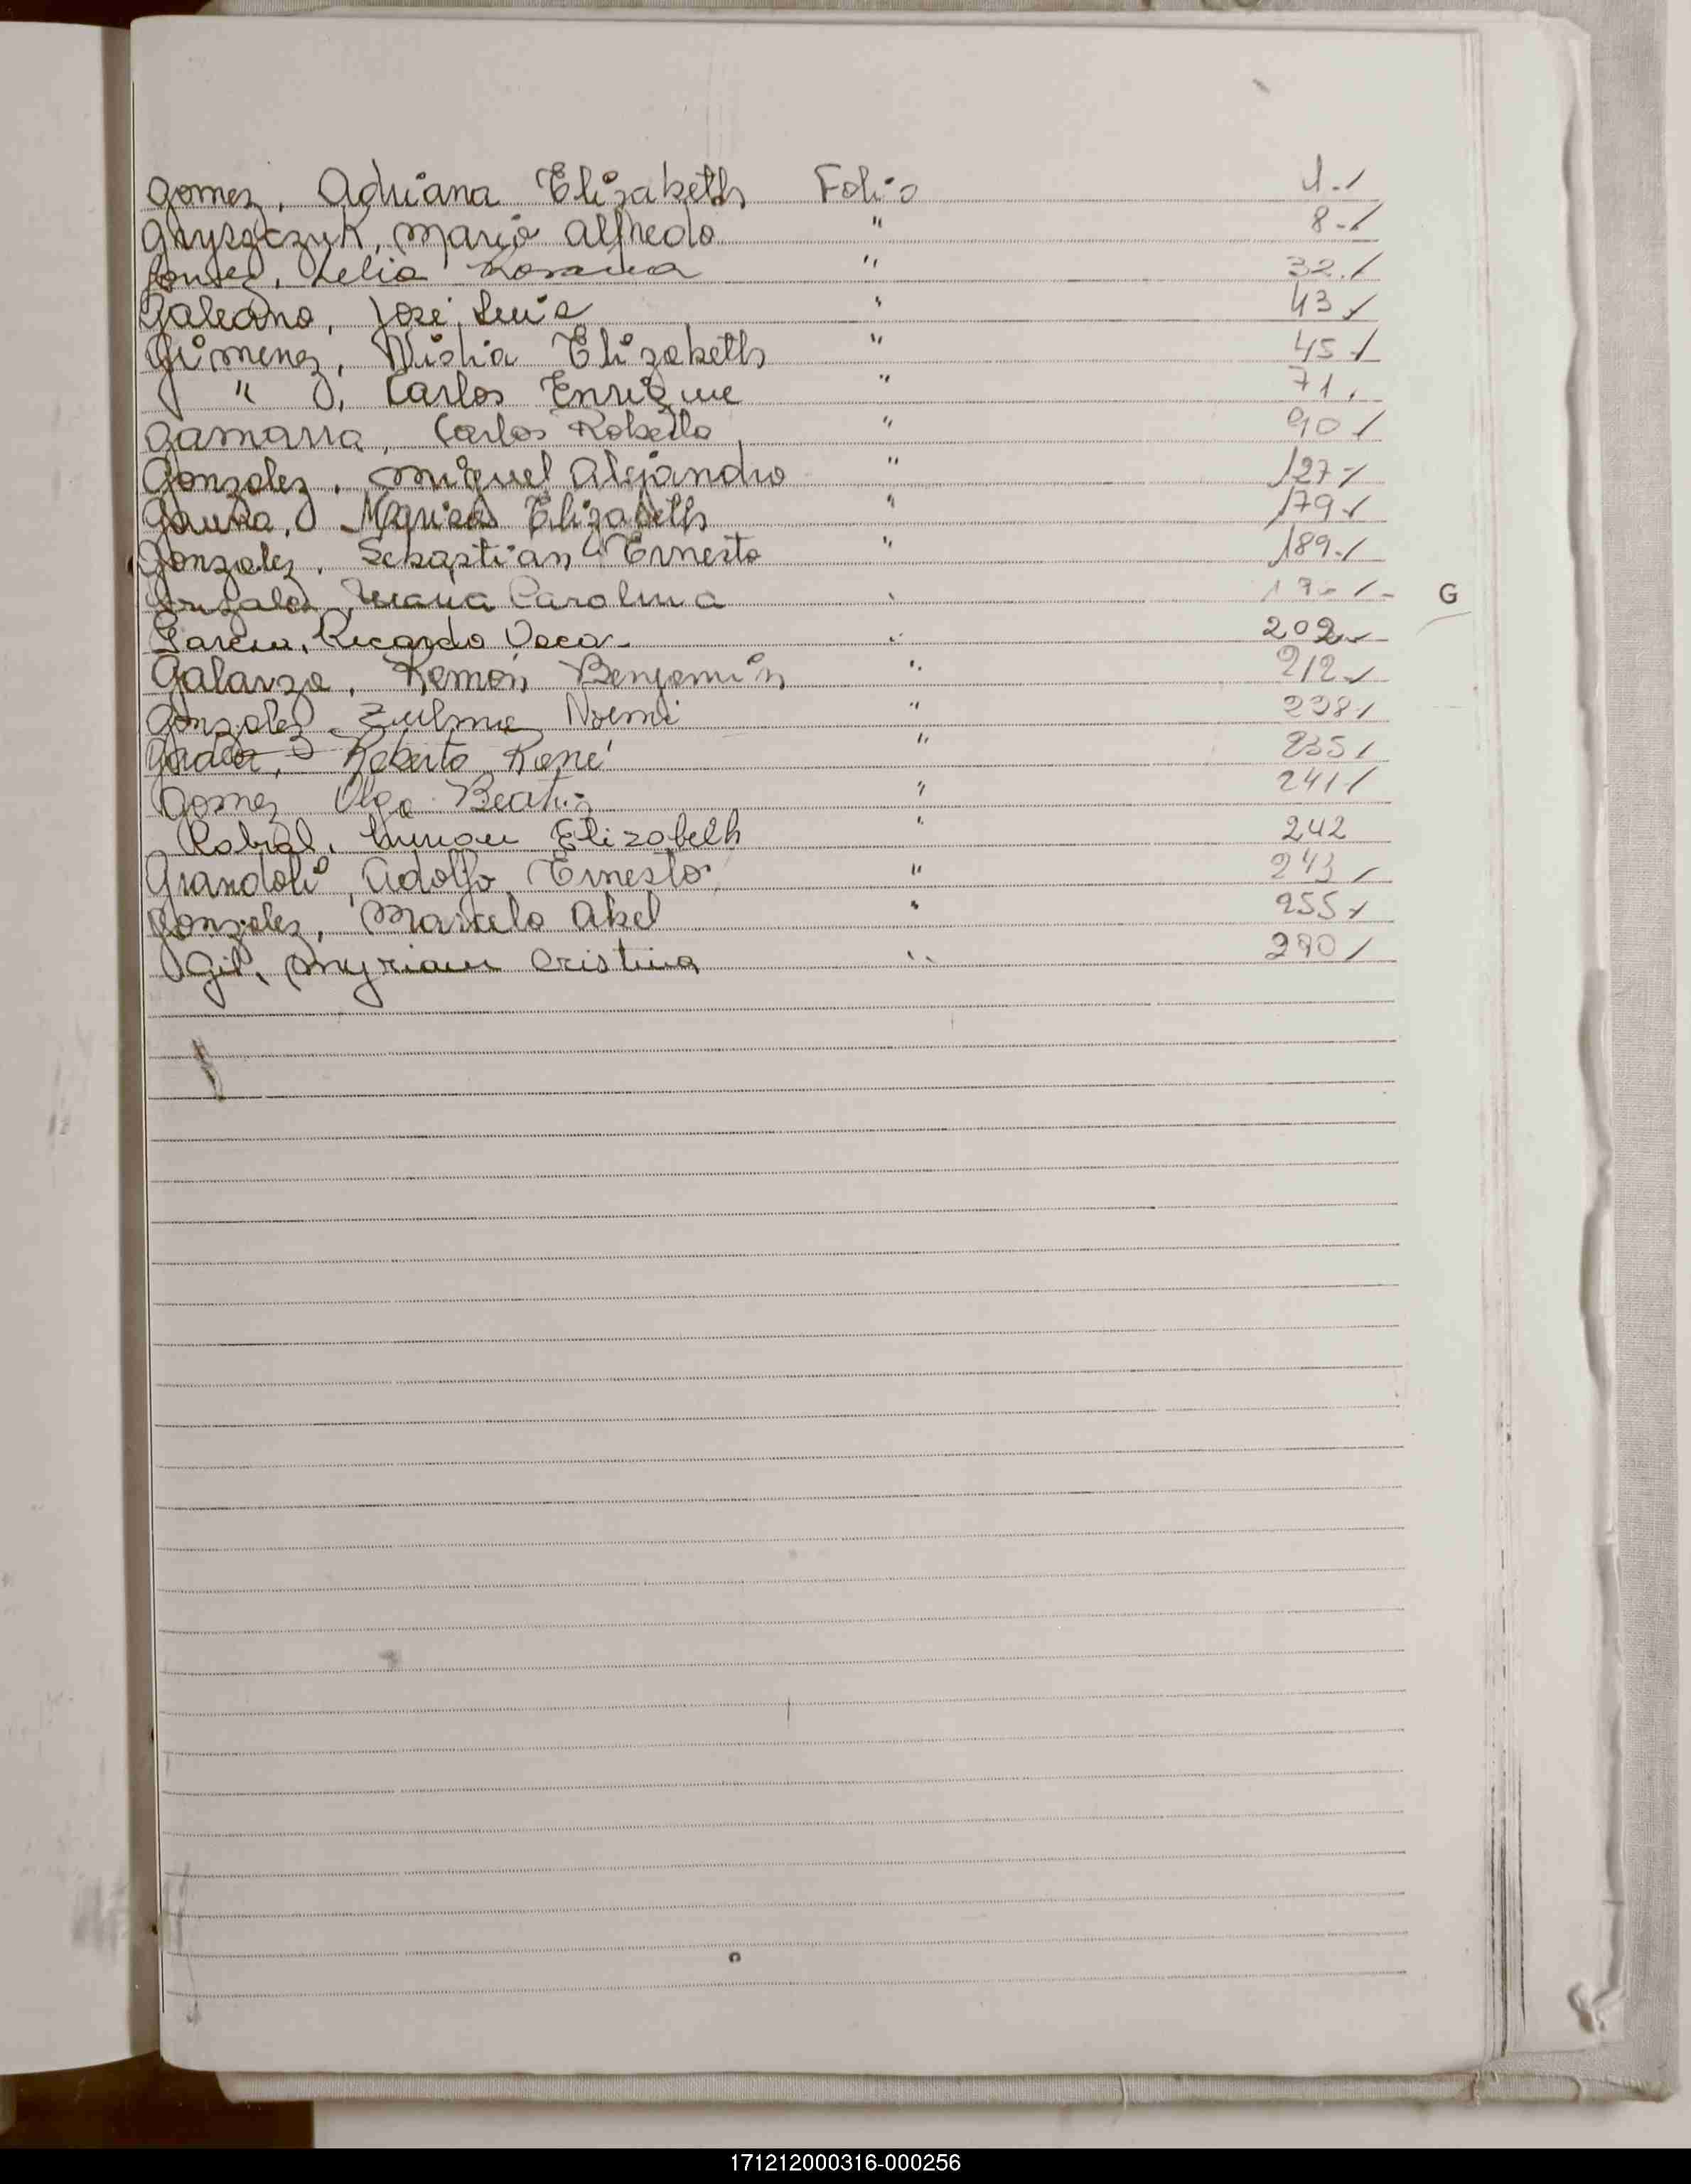 Gomez, Adriana Elizabeth Folio 1.-/
Gryszczuk, Mario Alfredo " 8-/
Gomez, Lelia Rosana " 32./
Galeano, José Luis " 43/
Gimenez, Nidia Elizabeth " 45-/
" , Carlos Enrique " 71.
Gamarra, Carlos Roberto " 90/
Gonzalez, Miguel Alejandro " 127-/
Elizabeth " 179-/
Gonzalez, Sebastian Ernesto " 189-/
Carolina "
Garcia, Ricardo Oscar " 202
Galarza, Ramón Benjamin " 212/
Gonzalez Zulma Noemi "
Roberto René " 235/
Gomez Olga Beatriz " 241/
Cabral, Elizabeth " 242
Grandoli, Adolfo Ernesto, " 243/
Gonzalez, Marcelo Abel " 255/
Gil, Myriam Cristina " 290/
G
171212000316-000256